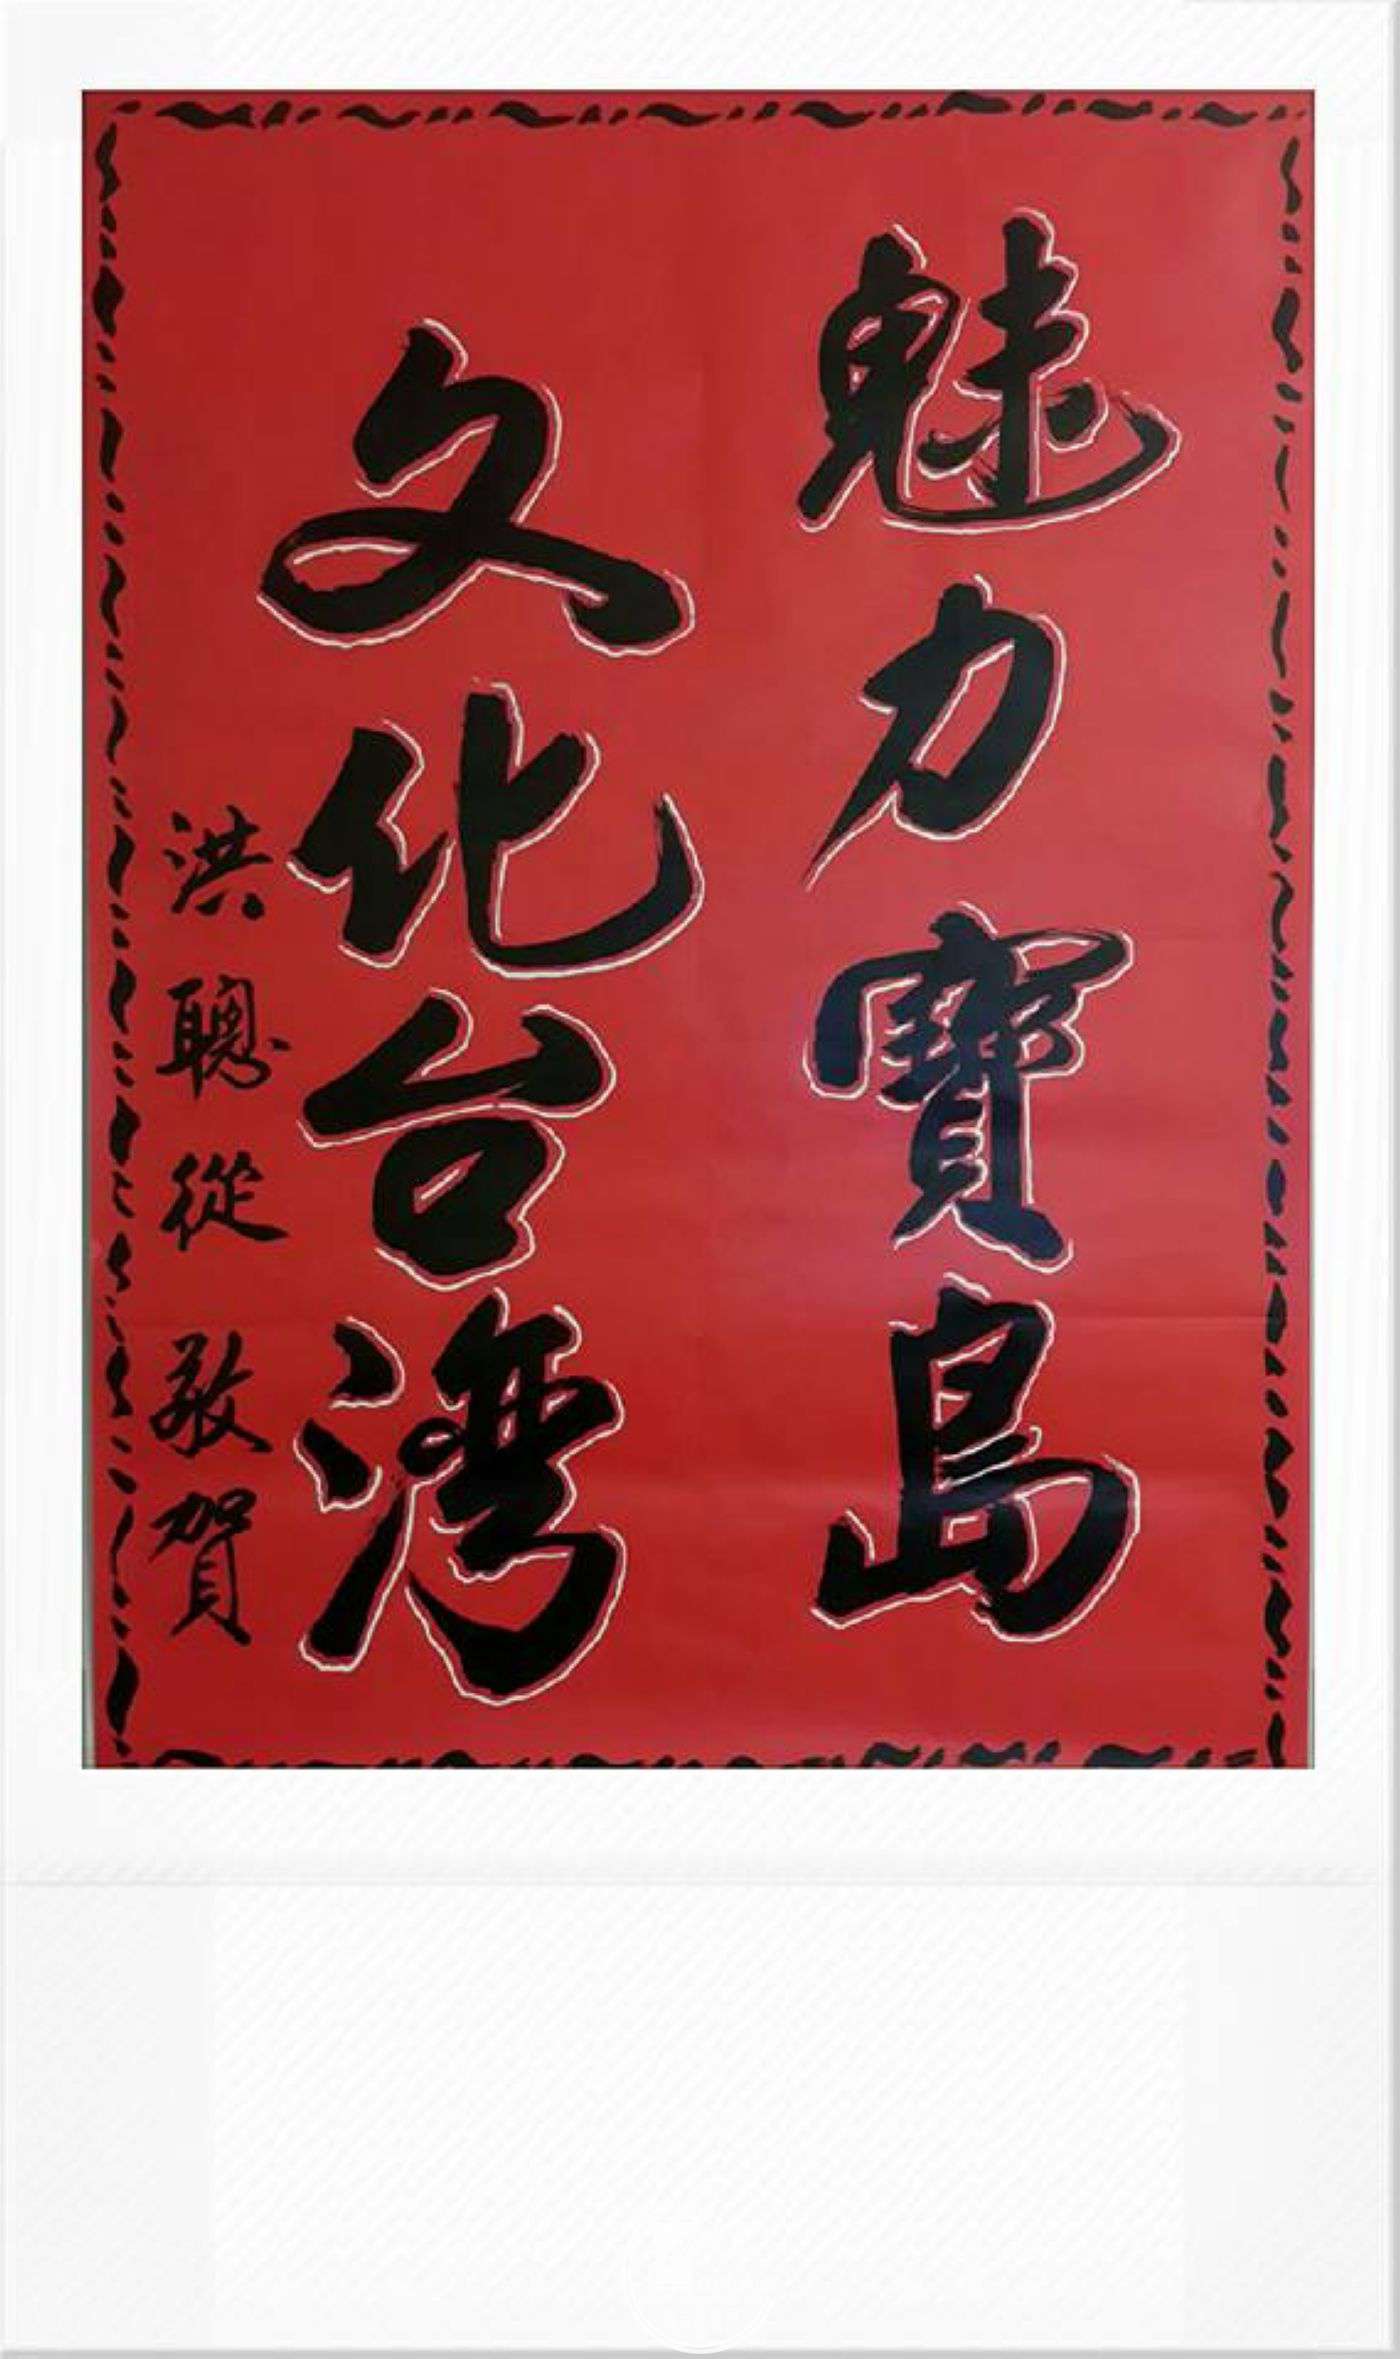 魅力寶島
文化台灣
洪聰從 敬賀